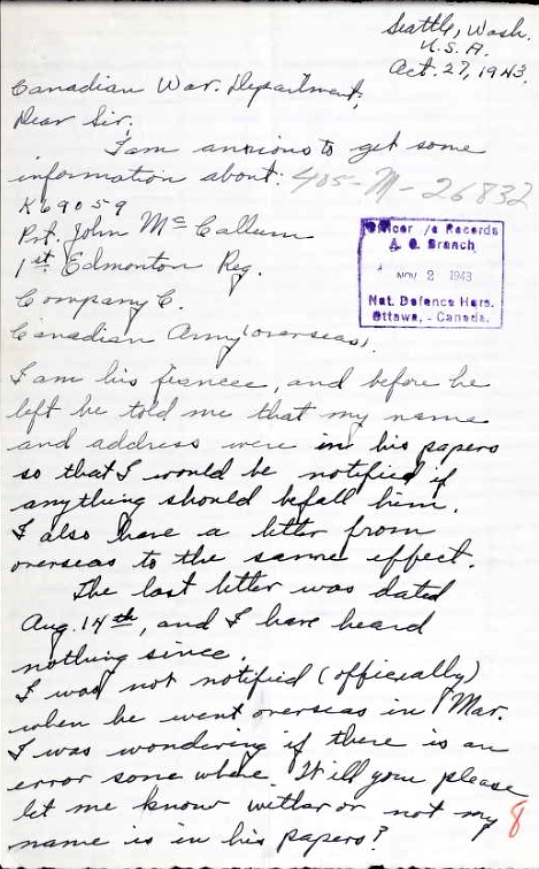 Seattle, Wash.
U.S.A.
Oct. 27, 1943.
Canadian War. Department,
Dear Sir.
I am anxious to get some
information about: 405-M-26832
K69059
Pvt. John McCallum
1st Edmonton Reg.
Company C.
Canadian Army (overseas).
Officer i/c Records
A. G. Branch
NOV 2 1943
Nat. Defence Hqrs.
Ottawa, - Canada.
I am his fiancee, and before he
left he told me that my name
and address were in his papers
so that I would be notified if
anything should befall him.
I also have a letter from
overseas to the same effect.
The last letter was dated
Aug. 14th, and I have heard
nothing since.
I was not notified (officially)
when he went overseas in Mar.
I was wondering if there is an
error some where. Will you please
let me know wether or not my
name is in his papers?
8